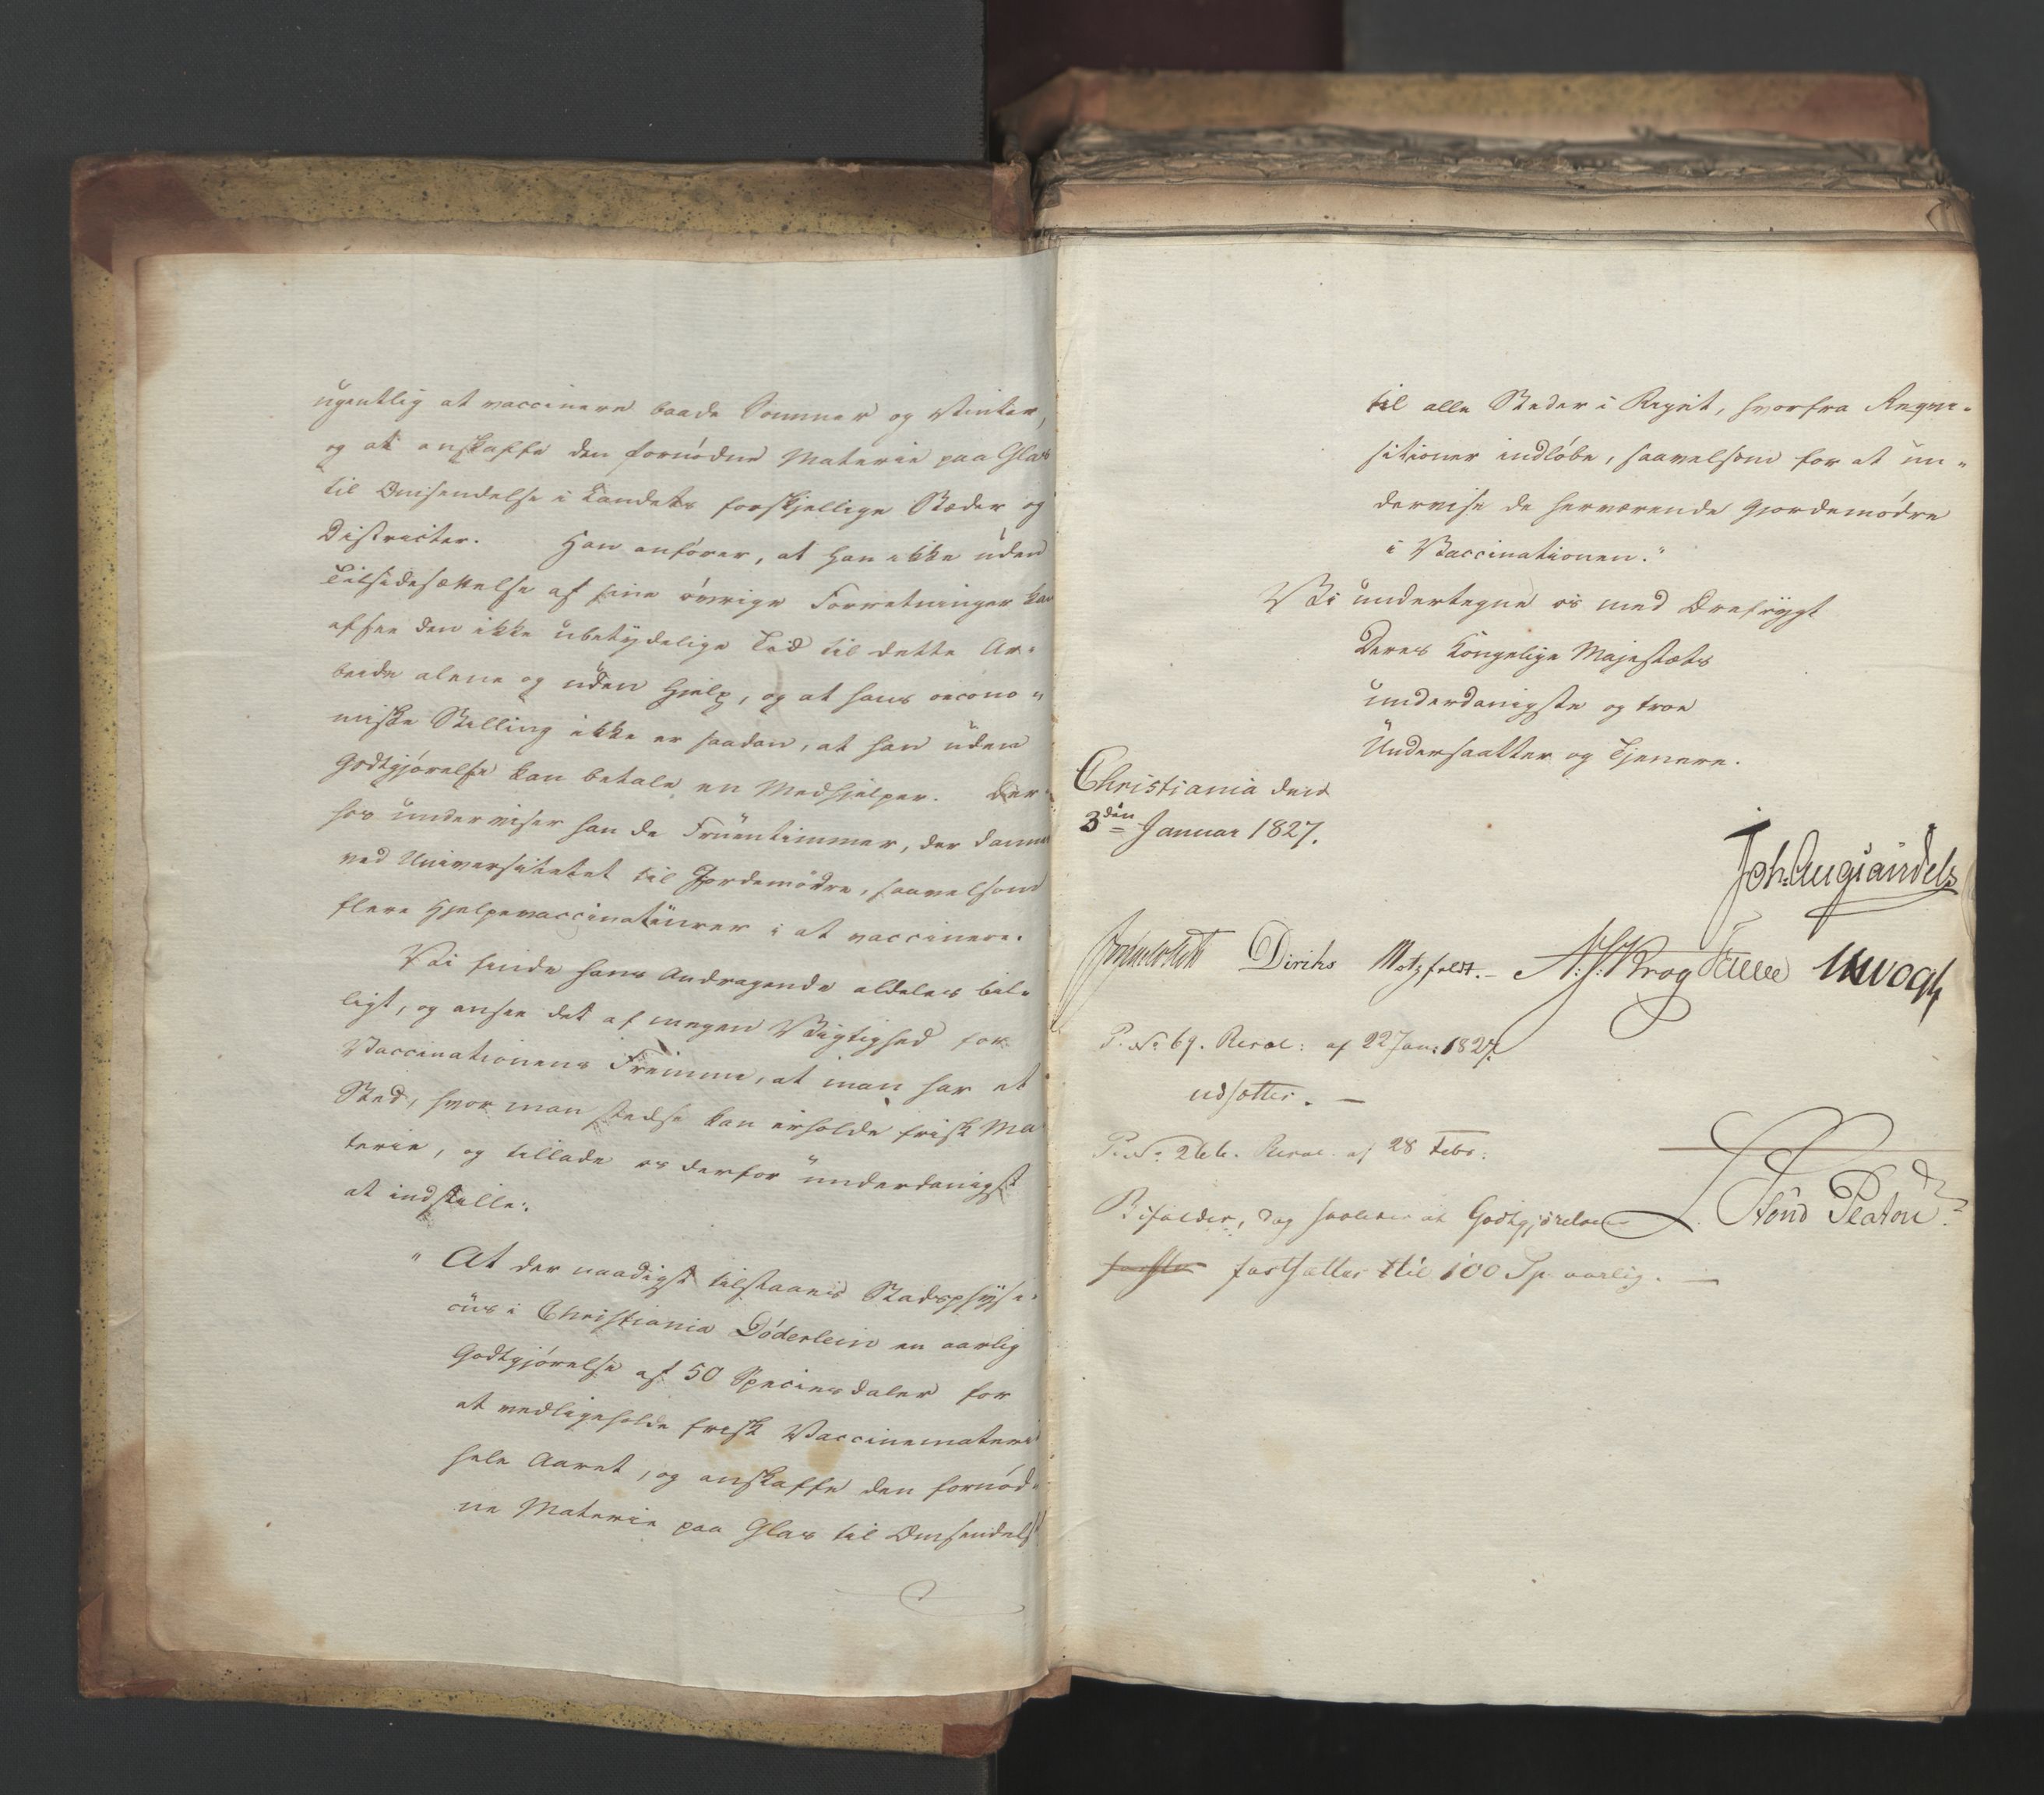 ugentlig at vaccinere baade Sommer og Vinter,
og at anskaffe den fornødne Materie paa Glas
til Omsendelse i Landets forskjellige Stæder og
Districter. Han anfører, at han ikke uden
Tilsidesættelse af sine øvrige Forretninger kan
afsee den ikke ubetydelige Tid til dette Ar-
beide alene og uden Hjelp, og at hans oecono-
miske Stilling ikke er saadan, at han uden
Godtgjørelse kan betale en Medhjelper. Der-
hos underviser han de Fruentimmer, der dannes
ved Universitetet til Jordemødre, saavelsom
flere Hjelpevaccinateurer i at vaccinere.
Vi finde hans Andragende aldeles bil-
ligt, og ansee det af megen Vigtighed for
Vaccinationens Fremme, at man har et
Sted, hvor man stedse kan erholde frisk Ma-
terie, og tillade os derfor underdanigst
at indstille:
" At der naadigst tilstaaes Stadsphysi-
cus i Christiania Døderlein en aarlig
Godtgjørelse af 50 Speciesdaler for
at vedligeholde frisk Vaccinemateri
hele Aaret, og anskaffe den fornød-
ne Materie paa Glas til Omsendelse
til alle Steder i Riget, hvorfra Requi-
sitioner indløbe, saavelsom for at un-
dervise de herværende Gjordemødre
i Vaccinationen."
Vi undertegne os med Ærefrygt
Deres Kongelige Majestæts
underdanigste og troe
Undersaatter og Tjenere.
Christiania den
3den Januar 1827.
Joh: Aug: Sandels
Diriks Motzfeldt. A: S: Krog Fasting UKVogt
P. No 69. Resol: af 22 Jan: 1827.
udsættes. —
P. No 266. Resol. af 28 Febr:
Bifaldes, dog saaledes at Godtgjørelsen
fastsættes til 100 Sp. aarlig. —